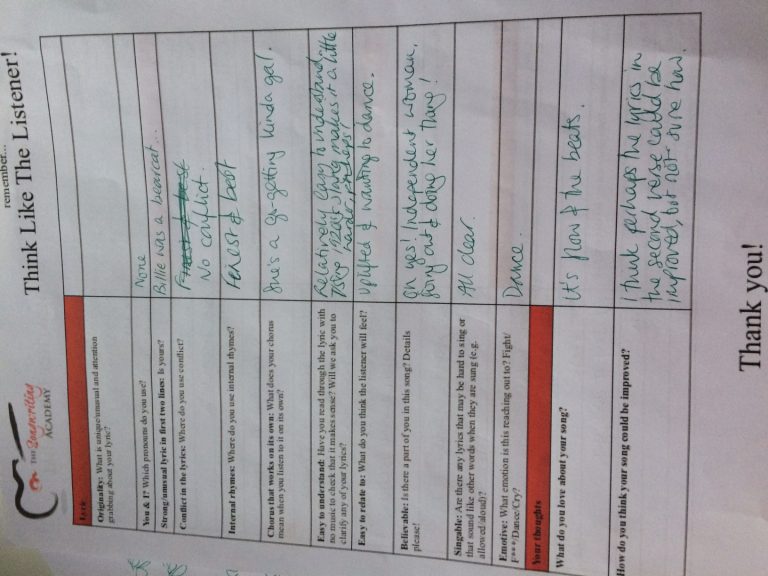 remember...
Think Like The Listener!
THE Songwriting
ACADEMY
Lyric
Originality: What is unique/unusual and attention
grabbing about your lyric?
You & I? Which pronouns do you use?
None
Strong/unusual lyric in first two lines: Is yours?
Billie was a bearcat...
Conflict in the lyrics: Where do you use conflict?
No conflict.
Internal rhymes: Where do you use internal rhymes?
Fenest & best
Chorus that works on its own: What does your chorus
mean when you listen to it on its own?
She's a go-getting kinda gal.
Easy to understand: Have you read through the lyric with
no music to check that it makes sense? Will we ask you to
clarify any of your lyrics?
Relatively easy to understand,
using 1920s slang makes it a little
harder, perhaps!
Easy to relate to: What do you think the listener will feel?
Uplifted & wanting to dance.
Believable: Is there a part of you in this song? Details
please!
Oh yes! Independent woman,
going out & doing her thang!
Singable: Are there any lyrics that may be hard to sing or
that sound like other words when they are sung (e.g.
allowed/aloud)?
All clear.
Emotive: What emotion is this reaching out to? Fight/
F***/Dance/Cry?
Dance.
Your thoughts
What do you love about your song?
It's flow & the beats.
How do you think your song could be improved?
I think perhaps the lyrics in
the second verse could be
improved, but not sure how.
Thank you!